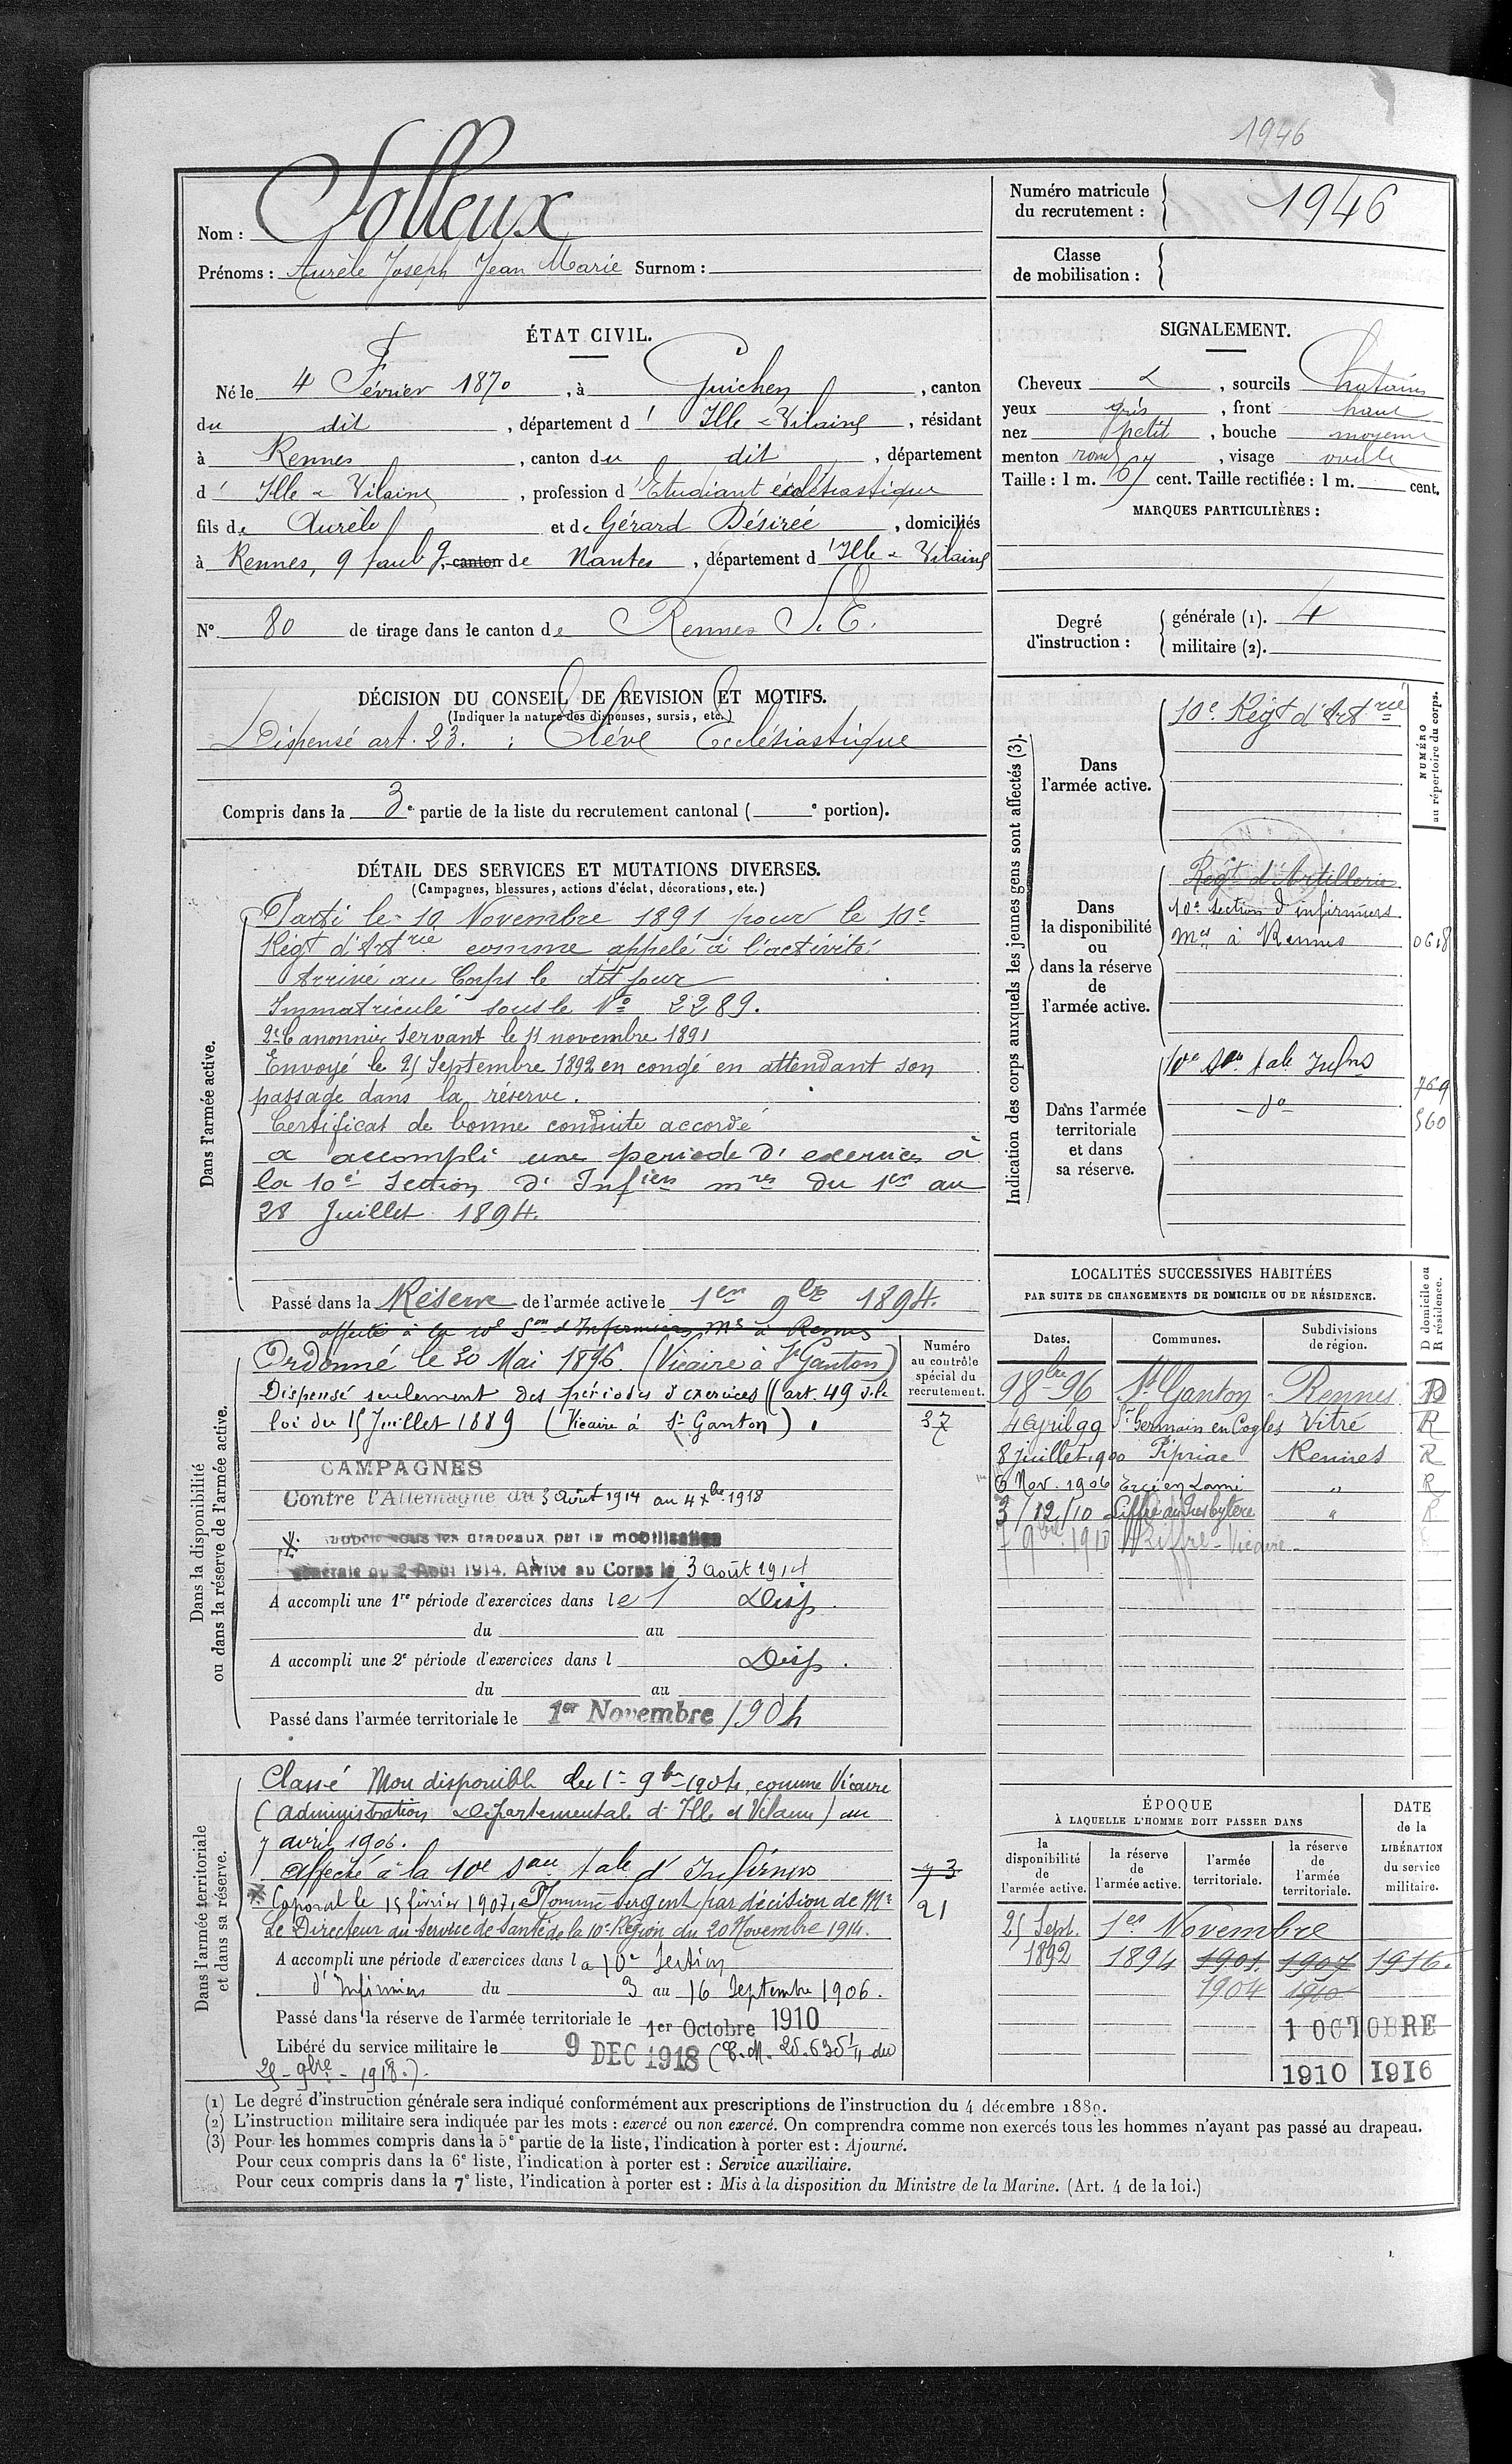 1946
Nom : Jolleux
Prénoms : Aurèle Joseph Jean Marie Surnom :
Numéro matricule du recrutement : 1946
Classe de mobilisation :
ÉTAT CIVIL.
Né le 4 Février 1870, à Guichen, canton
du dit, département d' Ille & Vilaine, résidant
à Rennes, canton du dit, département
d' Ille & Vilaine, profession d'Etudiant écclésiastique
fils de Aurèle et de Gérard Désirée, domiciliés
à Rennes, 9 faubg, canton de Nantes, département d'Ille & Vilaine
N° 80 de tirage dans le canton de Rennes S. E.
SIGNALEMENT.
Cheveux &, sourcils Chatains
yeux gris, front haut
nez petit, bouche moyenne
menton rond, visage ovale
Taille : 1 m. 67 cent. Taille rectifiée : 1 m. cent.
MARQUES PARTICULIÈRES :
Degré d'instruction :
générale (1). 4
militaire (2).
DÉCISION DU CONSEIL DE REVISION ET MOTIFS.
(Indiquer la nature des dispenses, sursis, etc.)
Dispensé art. 23. : Elève Ecclésiastique
Compris dans la 3e partie de la liste du recrutement cantonal ( e portion).
DÉTAIL DES SERVICES ET MUTATIONS DIVERSES.
(Campagnes, blessures, actions d'éclat, décorations, etc.)
Dans l'armée active.
Parti le 10 Novembre 1891 pour le 10e
Régt d'Artrie comme appelé à l'activité
Arrivé au Corps le dit jour
Immatriculé sous le No 2289.
2e Canonnier Servant le 11 novembre 1891
Envoyé le 25 Septembre 1892 en congé en attendant son
passage dans la réserve.
Certificat de bonne conduite accordé
a accompli une periode d'exercices à
la 10e Section d'Infiers mres du 1er au
28 Juillet 1894.
Passé dans la Réserve de l'armée active le 1er 9bre 1894.
affecté à la 10e Son d'Infirmiers Mres à Rennes
Dans la disponibilité ou dans la réserve de l'armée active.
Ordonné le 30 Mai 1896. (Vicaire à St Ganton)
Dispensé seulement des périodes d'exercices (art. 49 d. la
loi du 15 Juillet 1889 (Vicaire à St Ganton)
CAMPAGNES
Contre l'Allemagne du 3 Août 1914 au 4 xbre 1918
sous les drapeaux par la mobilisation
générale du 2 Août 1914. Arrivé au Corps le 3 août 1914
A accompli une 1re période d'exercices dans le 1 Disp.
du au
A accompli une 2e période d'exercices dans l Disp.
du au
Passé dans l'armée territoriale le 1er Novembre 1904
Numéro au contrôle spécial du recrutement.
37
Dans l'armée territoriale et dans sa réserve.
Classé Non disponible du 1er 9bre 1904, comme Vicaire
(Administration Départementale d'Ille et Vilaine) au
7 avril 1906.
Affecté à la 10e son tale d'Infirmrs
Caporal le 15 février 1907, Nommé Sergent par décision de Mr
Le Directeur du Service de Santé de la 10e Région du 20 Novembre 1914.
A accompli une période d'exercices dans la 10e Section
d'Infirmiers du 3 au 16 Septembre 1906.
Passé dans la réserve de l'armée territoriale le 1er Octobre 1910
Libéré du service militaire le 9 DEC 1918 (C.M. 25.635 1/11 du
25-9bre-1918.)
73
21
Indication des corps auxquels les jeunes gens sont affectés (3).
NUMÉRO au répertoire du corps.
Dans l'armée active.
10e Régt d'Artrie
Dans la disponibilité ou dans la réserve de l'armée active.
Régt d'Artillerie
10e Section d'infirmiers
Mres à Rennes 0618
Dans l'armée territoriale et dans sa réserve.
10e Son tale Infrs 769
-do- 560
LOCALITÉS SUCCESSIVES HABITÉES
PAR SUITE DE CHANGEMENTS DE DOMICILE OU DE RÉSIDENCE.
Dates. Communes. Subdivisions de région. D domicile ou R résidence.
9 8bre 96 St Ganton Rennes D
4 Avril 99 St Germain en Cogles Vitré R
8 juillet 1900 Pipriac Rennes R
6 Nov. 1906 Ercé en Lamé " R
3/12/10 Liffré au Presbytère " R
7 9bre 1910 Liffré - Vicaire
ÉPOQUE
À LAQUELLE L'HOMME DOIT PASSER DANS
la disponibilité de l'armée active.
la réserve de l'armée active.
l'armée territoriale.
la réserve de l'armée territoriale.
DATE de la LIBÉRATION du service militaire.
25 Sept. 1er Novembre
1892 1894 1901. 1907 1916.
1904 1910
1 OCTOBRE
1910 1916
(1) Le degré d'instruction générale sera indiqué conformément aux prescriptions de l'instruction du 4 décembre 1889.
(2) L'instruction militaire sera indiquée par les mots : exercé ou non exercé. On comprendra comme non exercés tous les hommes n'ayant pas passé au drapeau.
(3) Pour les hommes compris dans la 5e partie de la liste, l'indication à porter est : Ajourné.
Pour ceux compris dans la 6e liste, l'indication à porter est : Service auxiliaire.
Pour ceux compris dans la 7e liste, l'indication à porter est : Mis à la disposition du Ministre de la Marine. (Art. 4 de la loi.)